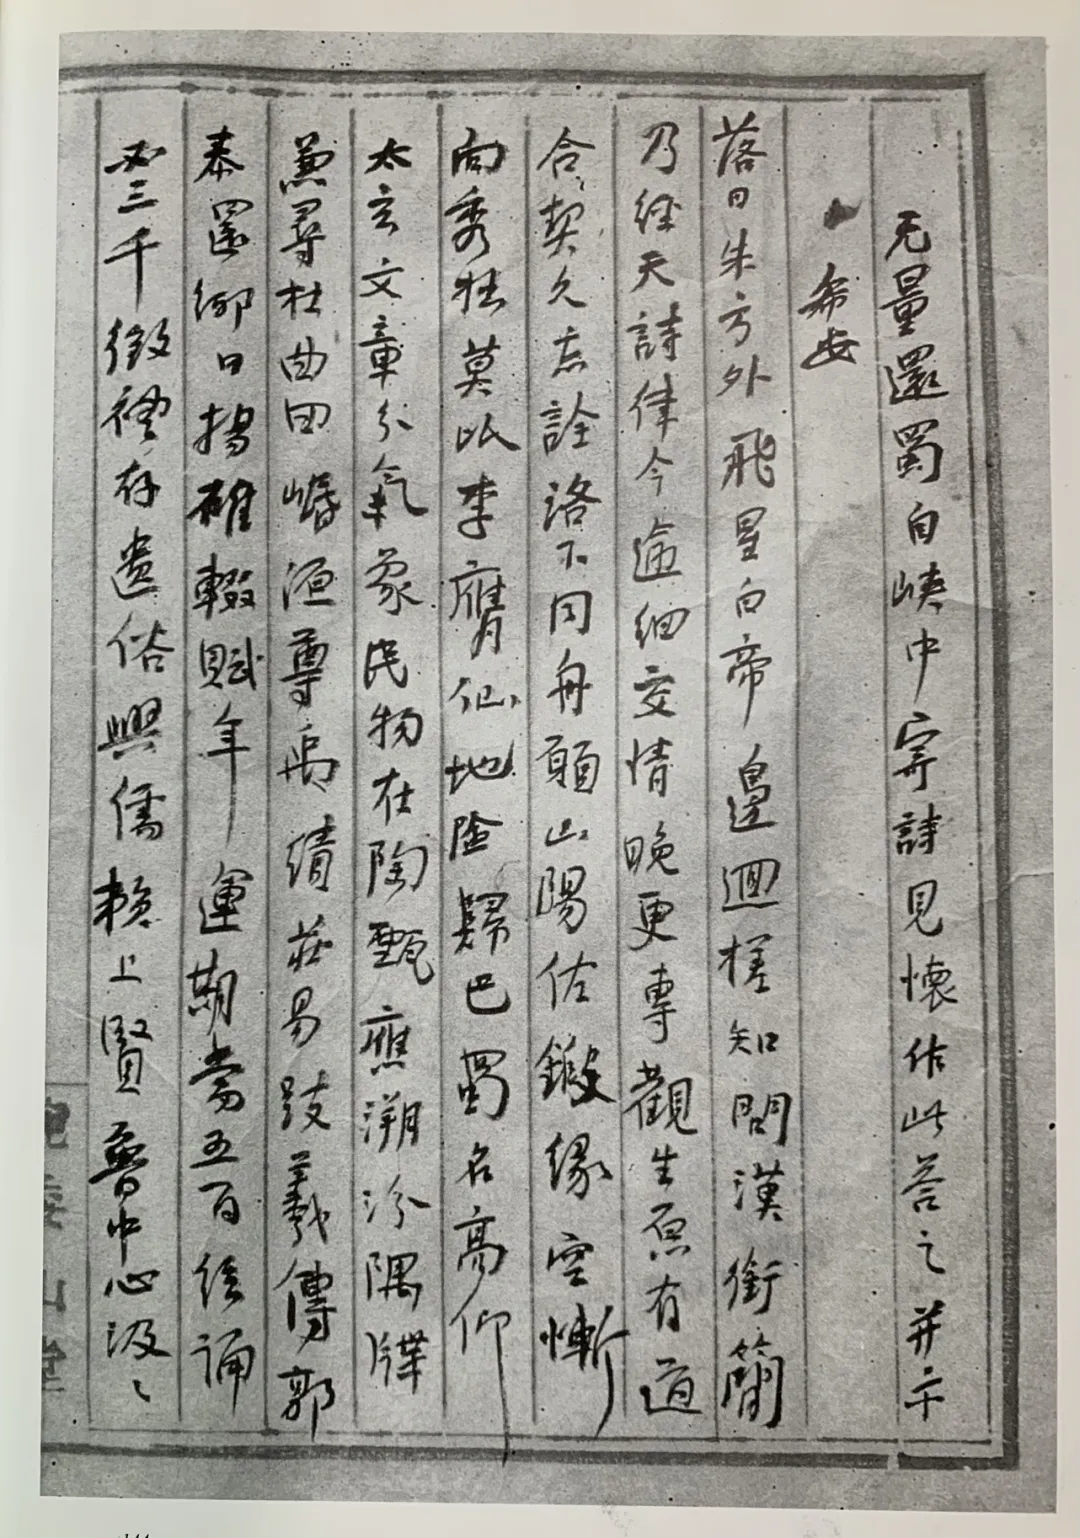 无量還蜀自峽中寄詩見懷作此荅之并示
希安
落日朱方外飛星白帝邊迴槎知問漢銜簡
乃經天詩律今逾細交情晚更專觀生原有道
合契久忘詮洛下同舟願山陽佐鍛緣空慚
向秀狂莫以李膺仙地險歸巴蜀名高仰
太玄文章分氣象民物在陶甄應溯汾隅牒
兼尋杜曲田崏洍尊禹績莊易跂羲傳郭
泰還鄉日揚雄輟賦年運期當五百弦誦
必三千徵禮存遺俗興儒賴上賢魯中心汲〻
委山堂